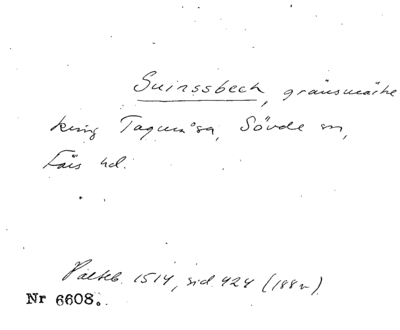 Suinssbech, gränsmärke
kring Tagmåsa, Sövde sn,
Färs hd.
Palteb. 1514, sid. 424 (188v).
Nr 6608.